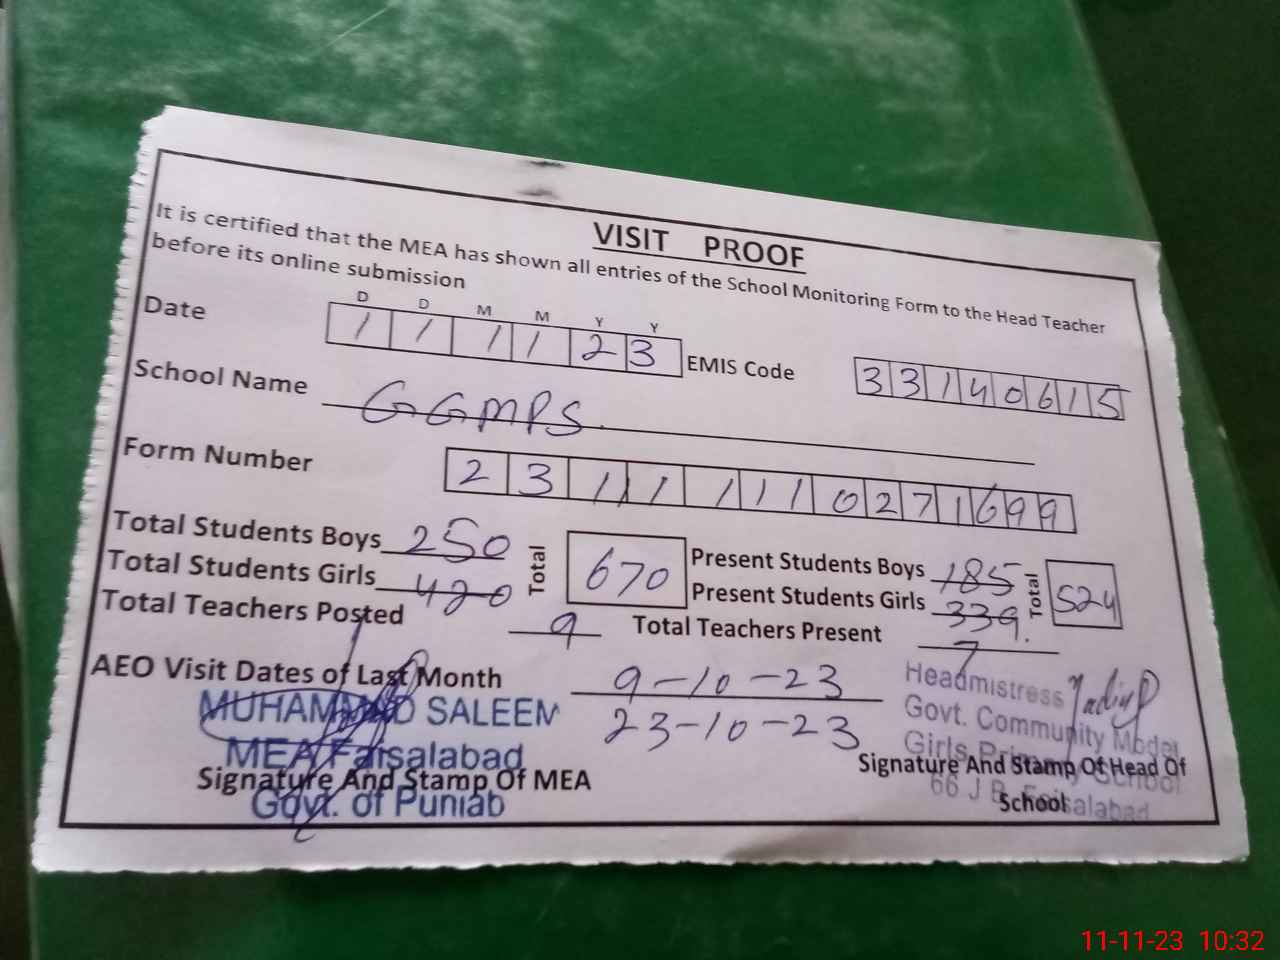 VISIT PROOF
It is certified that the MEA has shown all entries of the School Monitoring Form to the Head Teacher
before its online submission
D D M M Y Y
Date 1 1 1 1 2 3 EMIS Code 3 3 1 4 0 6 1 5
School Name GGMPS
Form Number 2 3 1 1 1 1 1 1 0 2 7 1 6 9 9
Total Students Boys 250 Total 670 Present Students Boys 185 Total 524
Total Students Girls 420 Present Students Girls 339.
Total Teachers Posted 9 Total Teachers Present 7
AEO Visit Dates of Last Month 9-10-23
23-10-23
MUHAMMAD SALEEM
MEA Faisalabad
Govt. of Punjab
Signature And Stamp Of MEA
Headmistress
Govt. Community Model
Girls Primary School
66 J B, Faisalabad
Signature And Stamp Of Head Of
School
11-11-23 10:32